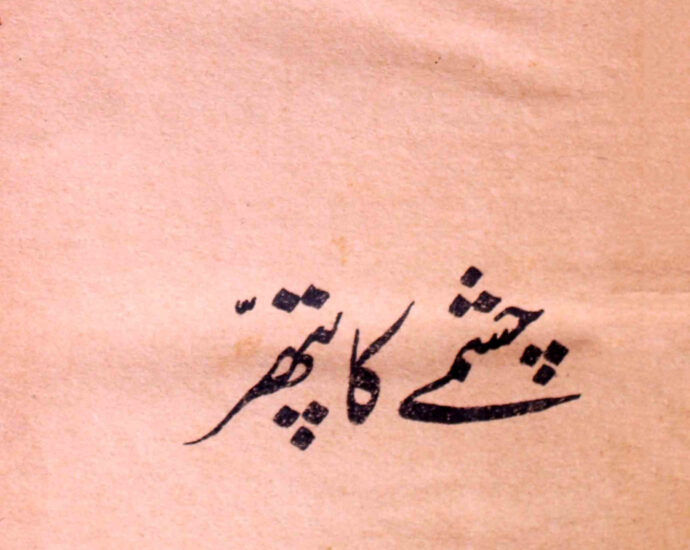 چشمے کا پتھّر